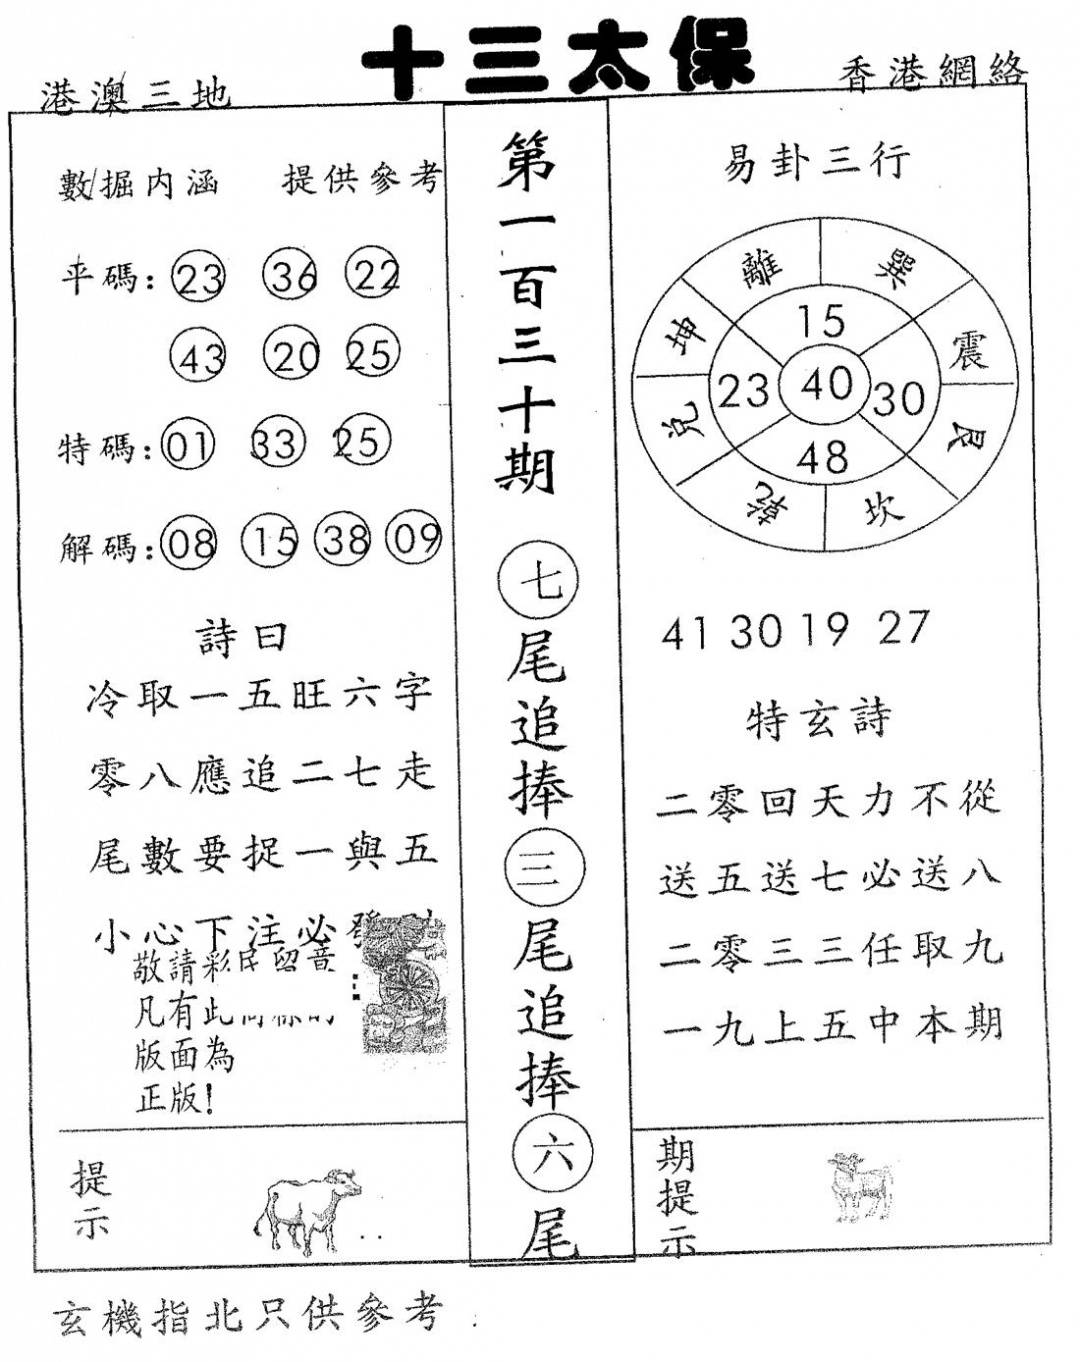 十三太保
港澳三地
香港網絡
數掘内涵 提供參考
平碼：23 36 22
43 20 25
特碼：01 33 25
解碼：08 15 38 09
詩曰
冷取一五旺六字
零八應追二七走
尾數要捉一與五
小心下注必發
敬請彩民留意
凡有此
版面為
正版！
提示
第一百三十期
七尾追捧三尾追捧六尾
易卦三行
離 巽
坤 震
兌 艮
乾 坎
15
23 40 30
48
41 30 19 27
特玄詩
二零回天力不從
送五送七必送八
二零三三任取九
一九上五中本期
期提示
玄機指北只供參考